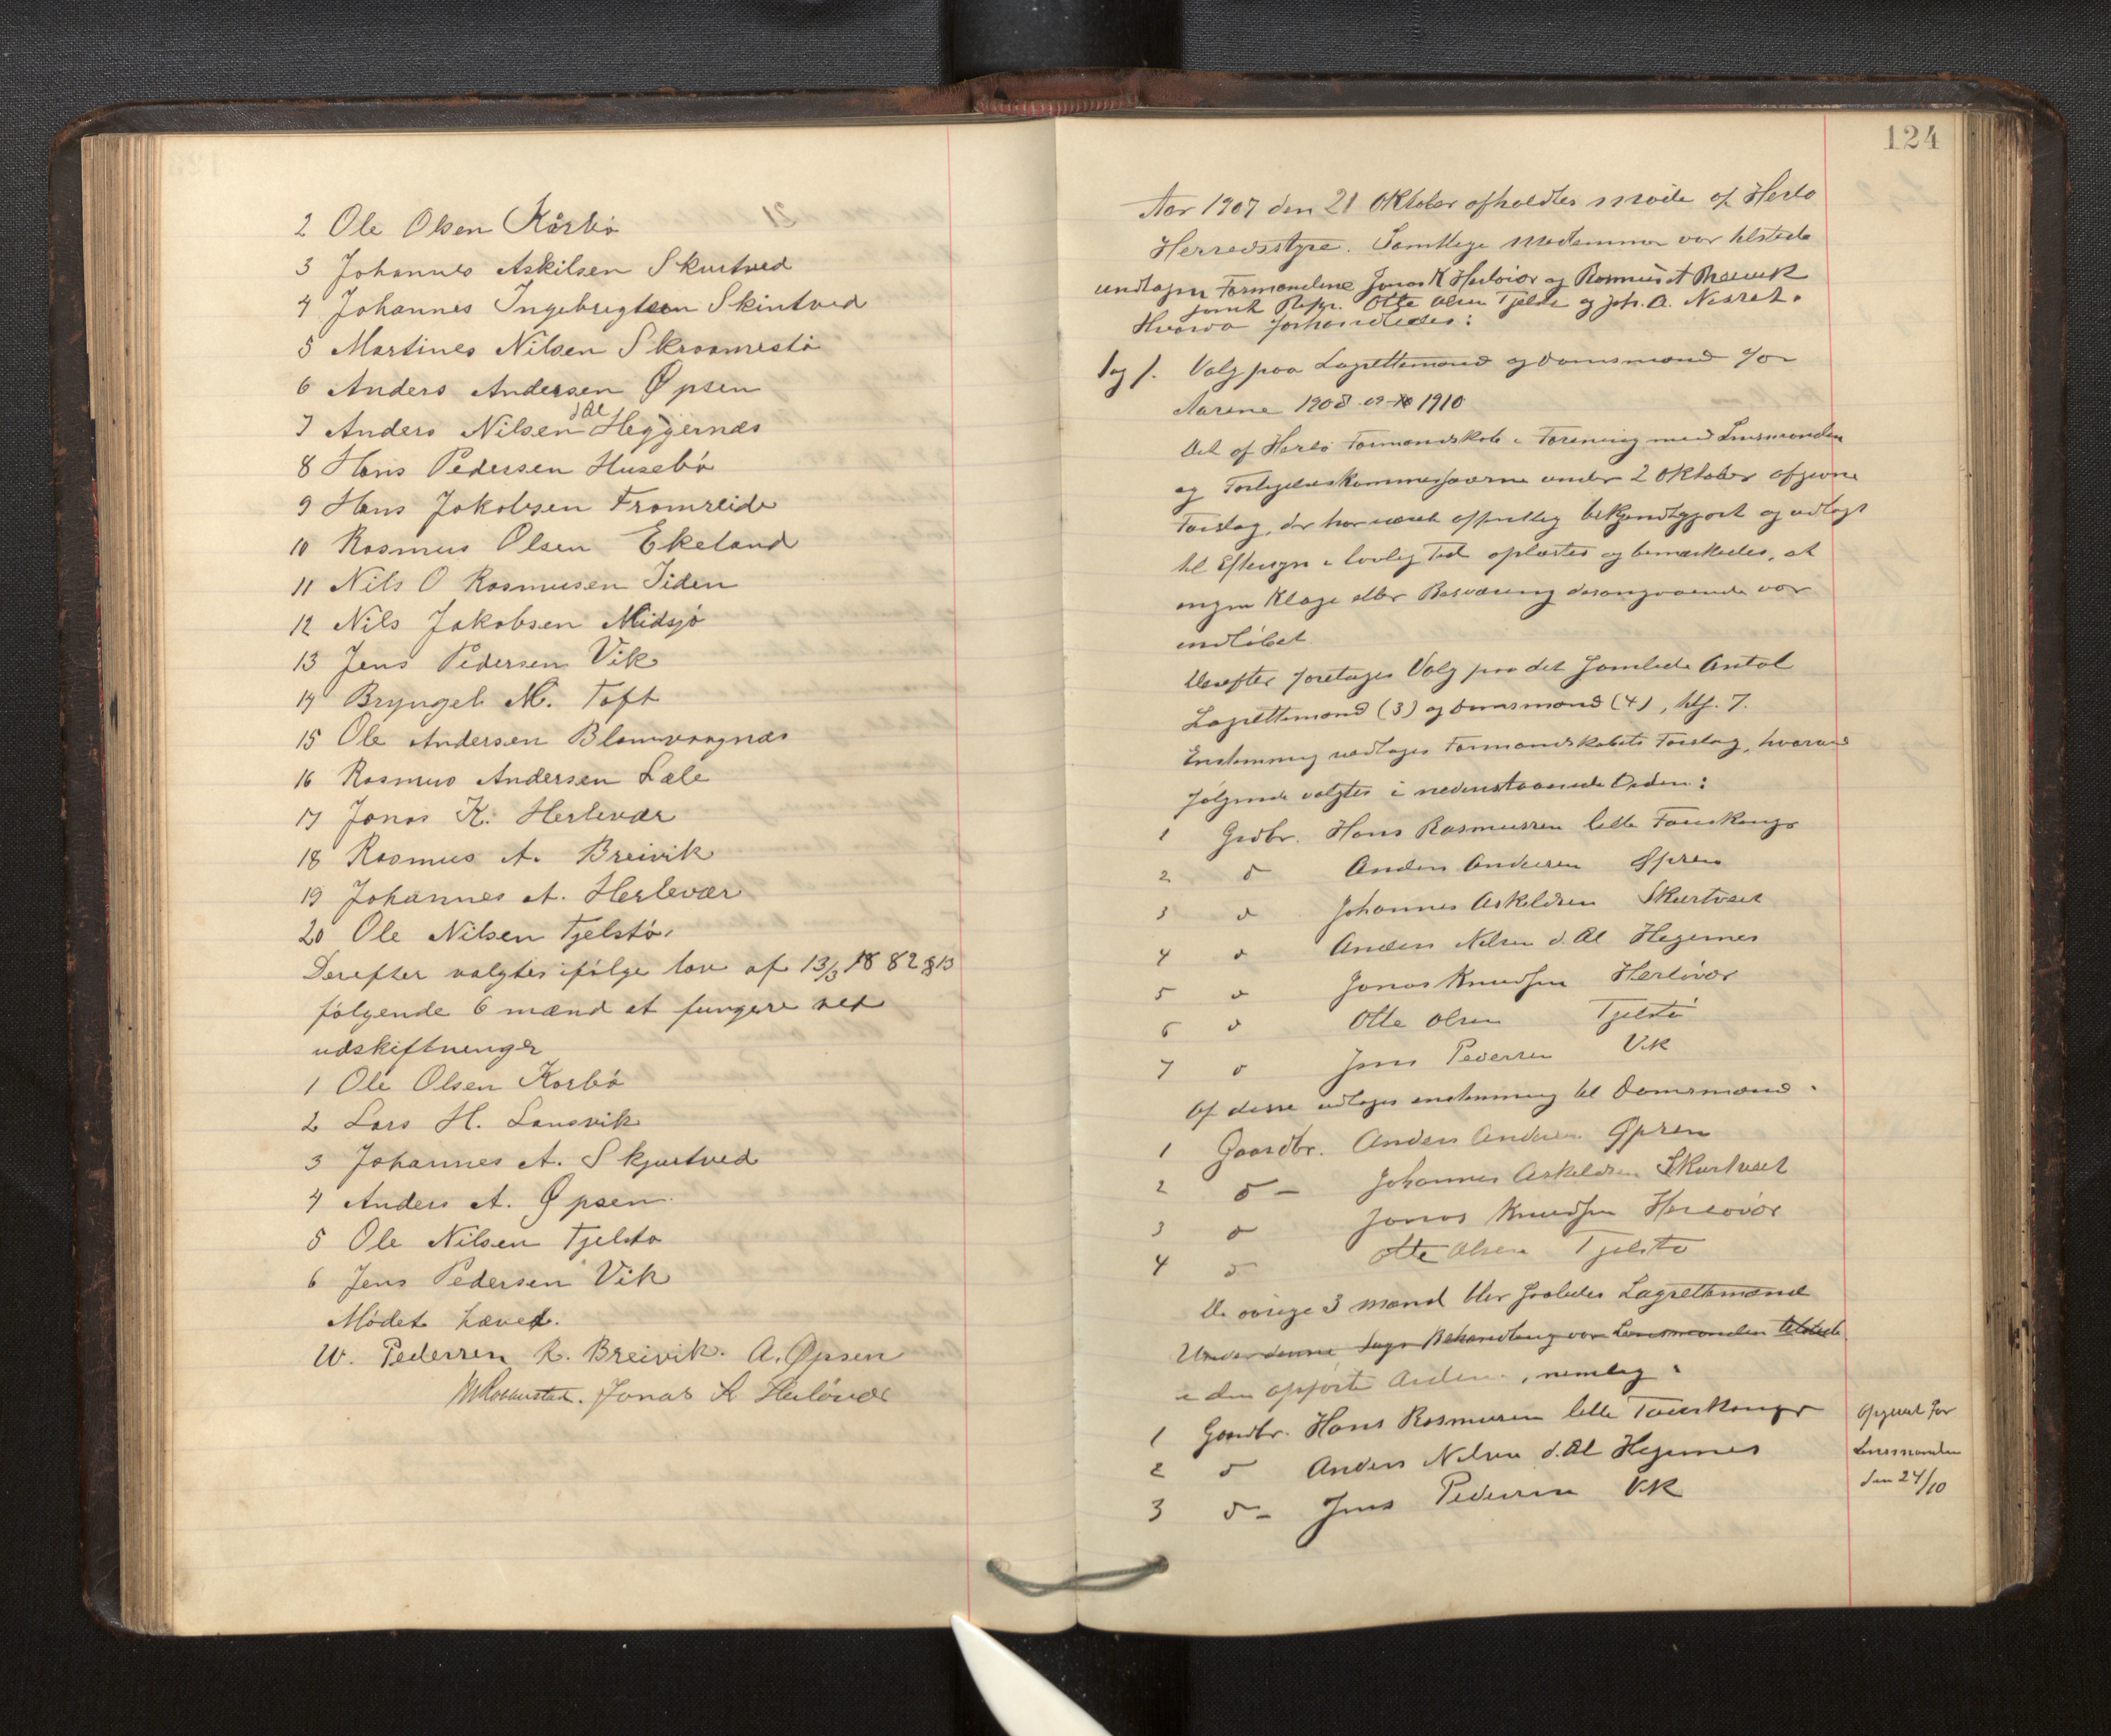 2 Ole Olsen Kårbø
3 Johannes Askilsen Skurtved
4 Johannes Ingebrigtsen Skintved
5 Martines Nilsen Skraamestø
6 Anders Andersen Øpsen
7 Anders Nilsen d Æl Heggernæs
8 Hans Pedersen Husebø
9 Hans Jakobsen Fromreide
10 Rasmus Olsen Ekeland
11 Nils O Rasmusen Tiden
12 Nils Jakobsen Midsjø
13 Jens Pedersen Vik
14 Bryngel M. Toft
15 Ole Andersen Blomvaagnæs
16 Rasmus Andersen Sæle
17 Jonas K. Herlevær
18 Rasmus A. Breivik
19 Johannes A. Herlevær
20 Ole Nilsen Tjelstø
Derefter valgtes ifølge lov af 13/3 1882 § 13
følgende 6 mænd at fungere ved
udskiftninger
1 Ole Olsen Korbø
2 Lars H. Landsvik
3 Johannes A. Skjurtved
4 Anders A. Øpsen
5 Ole Nilsen Tjelstø
6 Jens Pedersen Vik
Mødet hævet.
W. Pedersen R. Breivik. A. Øpsen
Jonas K Herløvær
124
Aar 1907 den 21 Oktober afholdtes Møde af Herlø
Herredsstyre. Samtlige Medlemmer var tilstede
undtagen Formændene Jonas K Herløvær og Rasmus A Breivik
samt Repr. Otte Olsen Tjelde og Joh. A.
Hvorda forhandledes:
Sag 1. Valg paa Lagrettemænd og Domsmænd for
Aarene 1908 09-10 1910
Det af Herlø Formandskab i Forening med Lensmanden
og Forligelseskommissærerne under 2 Oktober afgivne
Forslag, der har været offentlig bekjendtgjort og udlagt
til Eftersyn i lovlig Tid oplæstes og bemærkedes, at
ingen Klage eller Besværing desangaaende var
indløbet
Derefter foretages Valg paa det samlede Antal
Lagrettemænd (3) og Domsmænd (4), tils. 7.
Enstemmig vedtages Formandskabets Forslag, hvorved
følgende valgtes i nedenstaaende Orden:
1 Grdbr. Hans Rasmussen lille Fauskanger
2 d Anders Andersen Øpsen
3 d Johannes Askeldsen Skurtveit
4 d Anders Nilsen d. Æl Hegernes
5 d Jonas Knudsen Herløvær
6 d Otte Olsen Tjelstø
7 d Jens Pedersen Vik
Af disse udtages enstemmig til Domsmænd.
1 Gaardbr. Anders Andersen Øpsen
2 d – Johannes Askeldsen Skurtveit
3 d Jonas Knudsen Herløvær
4 d Otte Olsen Tjelstø
De øvrige 3 Mænd blev saaledes Lagrettemænd
Under denne Sags Behandling var Lensmanden tilstede
i den opførte Orden, nemlig:
1 Gaardbr. Hans Rasmussen lille Fauskanger
2 d Anders Nilsen d. Æl Hegernes
3 d – Jens Pedersen Vik
Opgivet for
Lensmanden
den 24/10